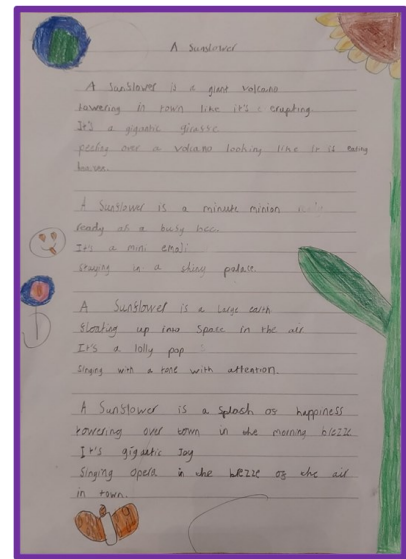 A Sunflower
A Sunflower is a giant volcano
towering in town like it's erupting.
It's a gigantic giraffe
peeing over a volcano looking like it is eating
A Sunflower is a minute minion
ready as a busy bee.
It's a mini emoji
Staying in a shiny palace.
A Sunflower is a large earth
floating up into space in the air
It's a lolly pop
Singing with a tone with attention.
A Sunflower is a splash of happiness
towering over town in the morning brezze
It's gigantic Joy
Singing opera in the brezze of the air
in town.